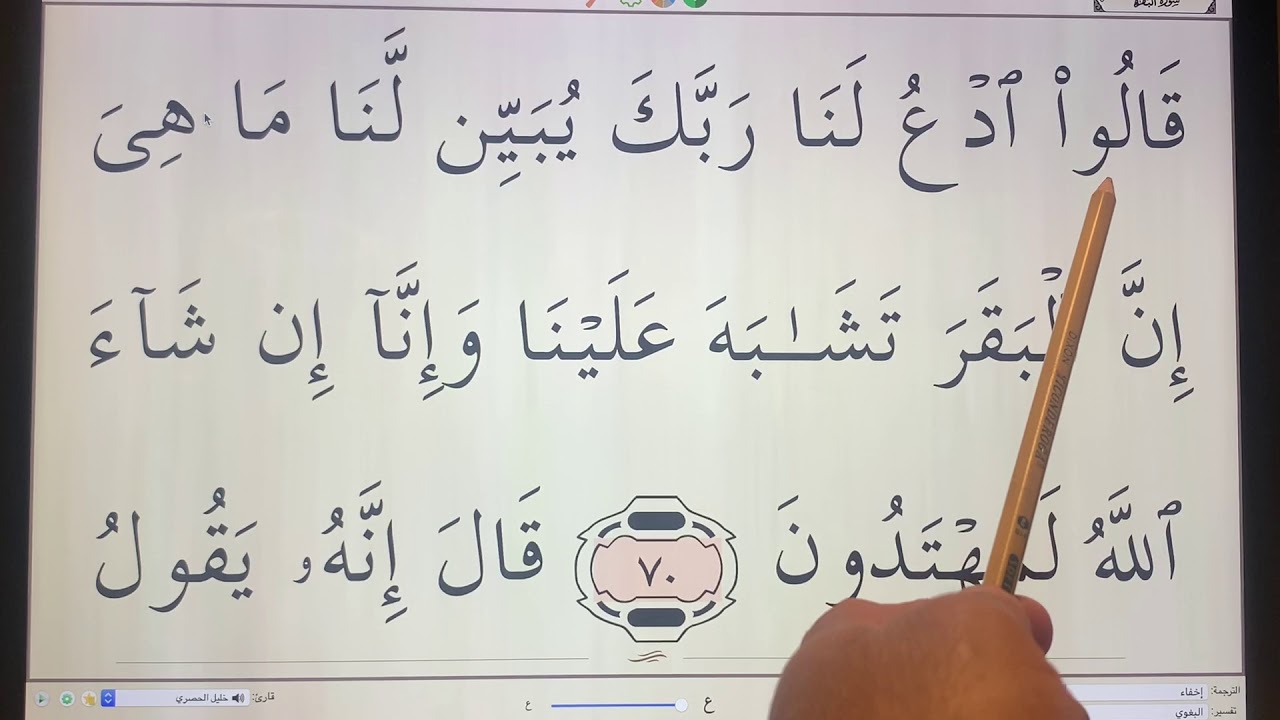 سورة البقرة
قَالُوا۟ ٱدْعُ لَنَا رَبَّكَ يُبَيِّن لَّنَا مَا هِىَ
إِنَّ ٱلْبَقَرَ تَشَـٰبَهَ عَلَيْنَا وَإِنَّآ إِن شَآءَ
ٱللَّهُ لَمُهْتَدُونَ ٧٠ قَالَ إِنَّهُۥ يَقُولُ
الترجمة: إخفاء
تفسير: البغوي
ع ع
قارئ: خليل الحصري
DIXON TICONDEROGA